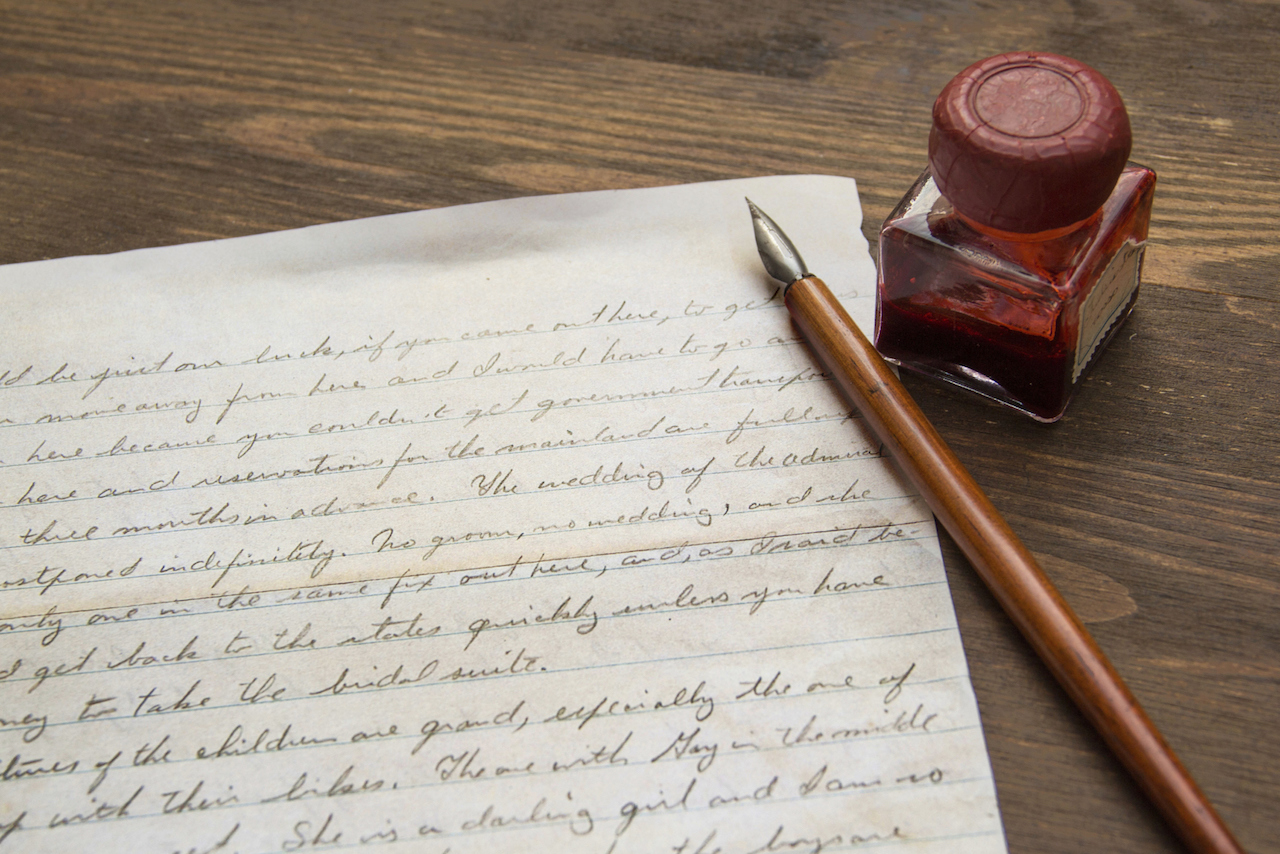 be just our luck, if you came out here, to get
move away from here and I would have to go
here because you couldn't get government
here and reservations for the mainland are full
three months in advance. The wedding of the admiral
indefinitely. No groom, no wedding, and she
only one in the same fix out here, and, as I said be-
get back to the states quickly unless you have
to take the bridal suite.
of the children are grand, especially the one of
with their bikes. The one with Gay in the middle
She is a darling girl and I am so
the boys are